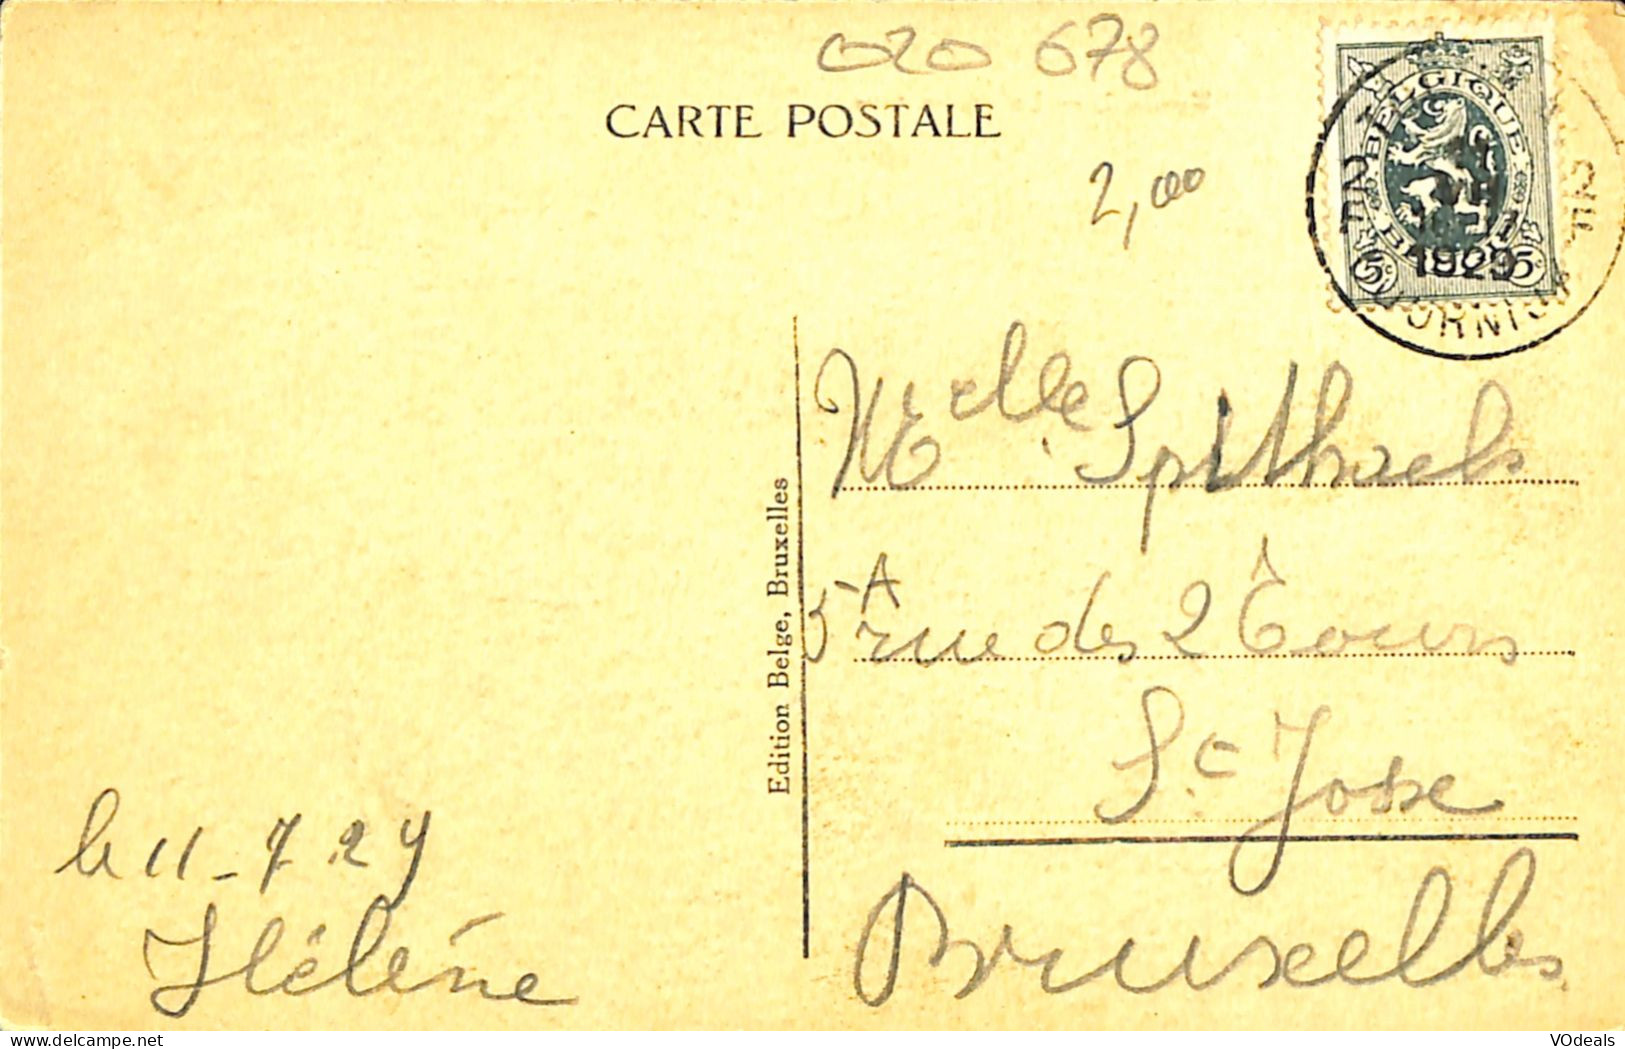 020 678
CARTE POSTALE
2,00
BELGIQUE
5c 5c
1929
Edition Belge, Bruxelles
Melle Spithaels
5A rue des 2 Tours
St Josse
Bruxelles
le 11-7.29
Hélène
VOdeals